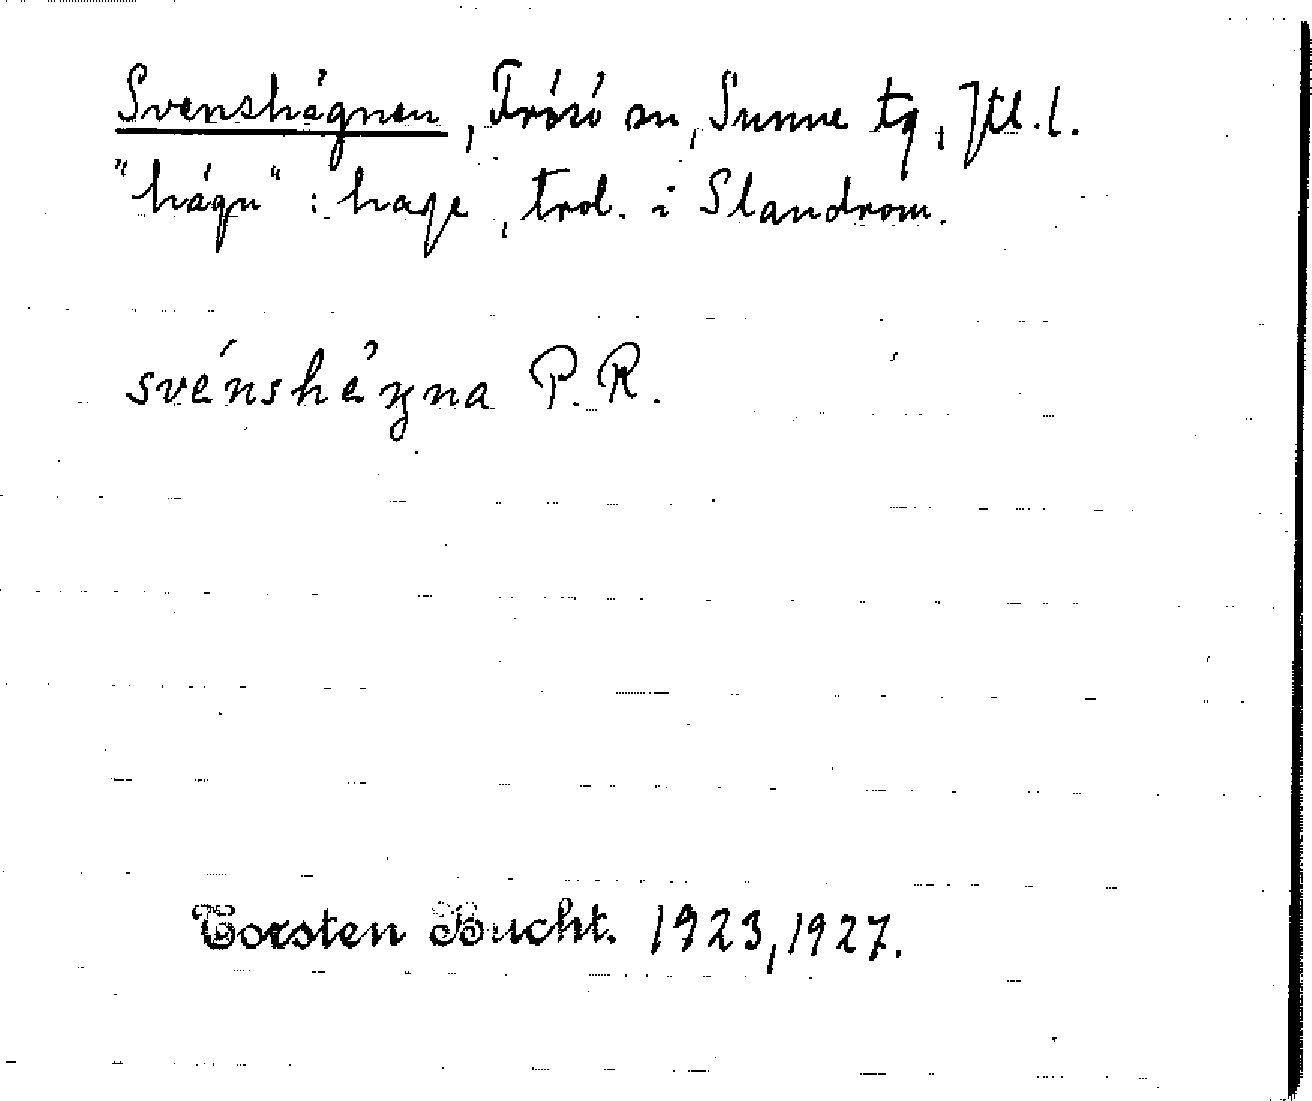 Svenshägnen, Frösö sn, Sunne tg, Jtl. l.
"hägn" : hage, trol. i Slandrom.
svénshèɳna P. R.
Torsten Bucht. 1923, 1927.